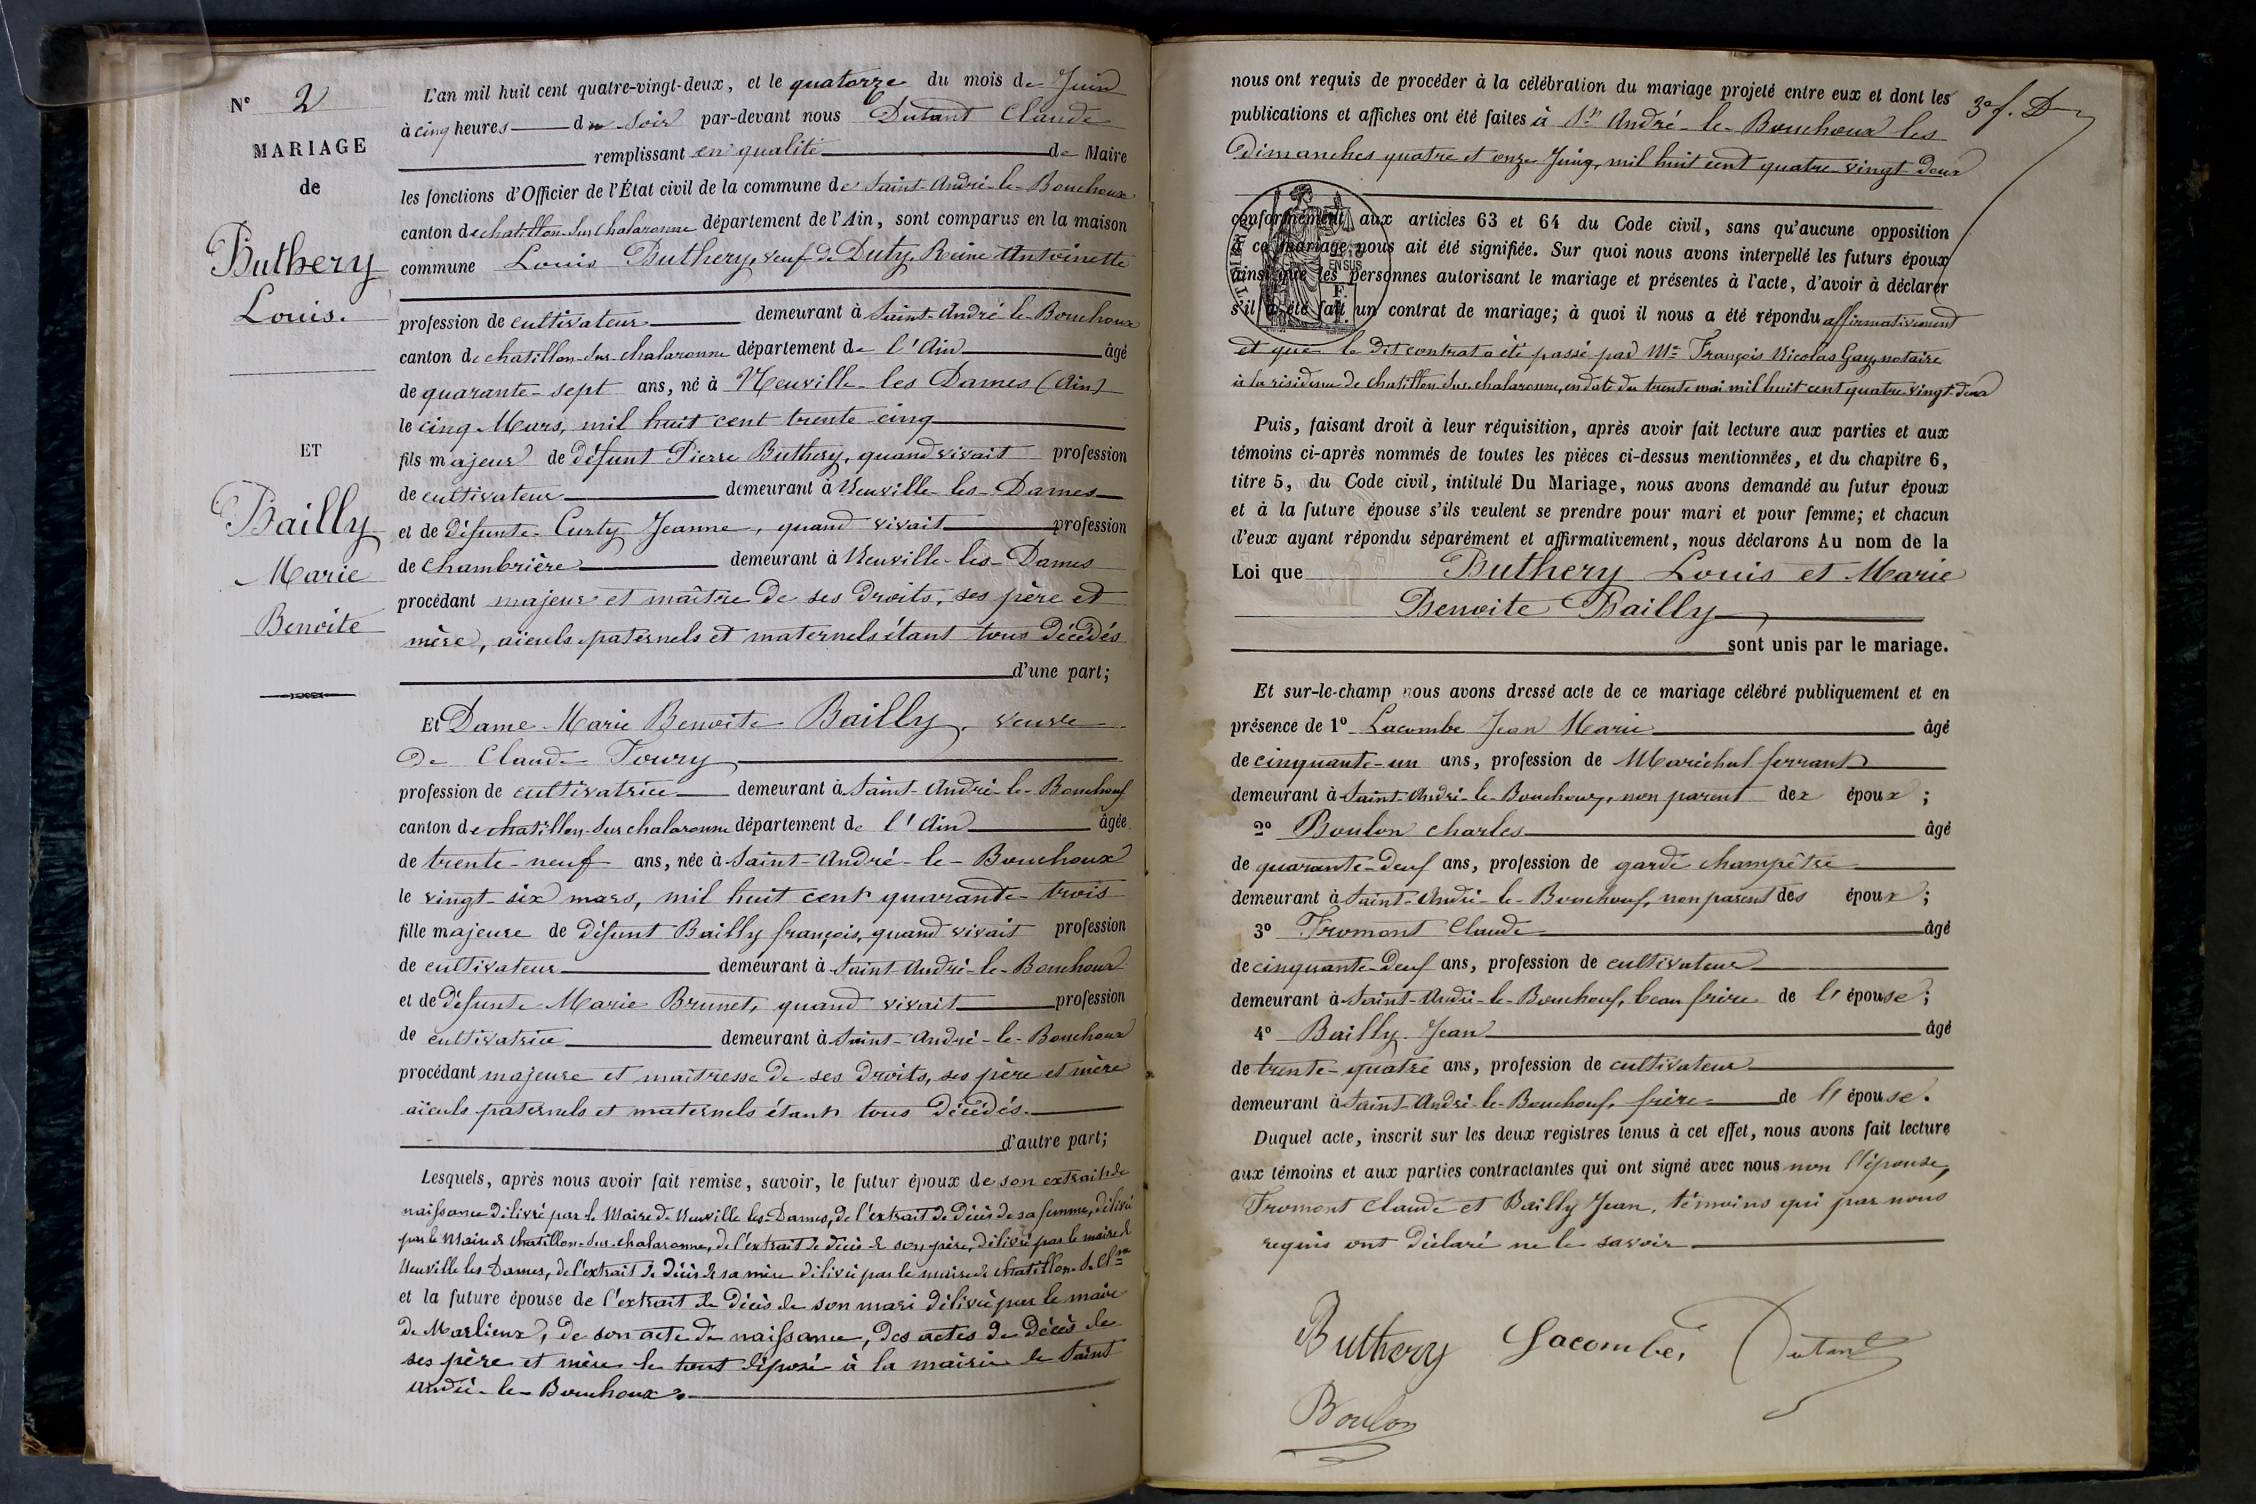 N° 2
MARIAGE
de
Buthery
Louis.
ET
Bailly
Marie
Benoite
L'an mil huit cent quatre-vingt-deux, et le quatorze du mois de Juin
à cinq heures du soir par-devant nous Dutant Claude
remplissant en qualité de Maire
les fonctions d'Officier de l'État civil de la commune de Saint-André-le-Bouchoux
canton de chatillon-sur-chalaronne département de l'Ain, sont comparus en la maison
commune Louis Buthery, veuf de Duty Reine Antoinette
profession de cultivateur demeurant à Saint-André-le-Bouchoux
canton de chatillon-sur-chalaronne département de l'Ain âgé
de quarante-sept ans, né à Neuville-les Dames (Ain)
le cinq Mars, mil huit cent trente cinq
fils majeur de défunt Pierre Buthery, quand vivait profession
de cultivateur demeurant à Neuville-les-Dames
et de défunte Curty Jeanne, quand vivait profession
de chambrière demeurant à Neuville-les-Dames
procédant majeur et maître de ses droits, ses père et
mère, aïeuls paternels et maternels étant tous décédés
d'une part;
Et Dame Marie Benoite Bailly, veuve
de Claude Foury
profession de cultivatrice demeurant à Saint-André-le-Bouchoux
canton de chatillon-sur chalaronne département de l'Ain âgée
de trente-neuf ans, née à Saint-André-le-Bouchoux
le vingt-six mars, mil huit cent quarante-trois
fille majeure de défunt Bailly françois, quand vivait profession
de cultivateur demeurant à Saint-André-le-Bouchoux
et de défunte Marie Brunet, quand vivait profession
de cultivatrice demeurant à Saint-André-le-Bouchoux
procédant majeure et maîtresse de ses droits, ses père et mère
aïeuls paternels et maternels étant tous décédés.
d'autre part;
Lesquels, après nous avoir fait remise, savoir, le futur époux de son extrait de
naissance délivré par le Maire de Neuville les-Dames, de l'extrait de décès de sa femme, délivré
par le Maire de chatillon-sur-chalaronne, de l'extrait de décès de son père, délivré par le maire de
Neuville les Dames, de l'extrait de décès de sa mère délivré par le maire de chatillon-s. Chne
et la future épouse de l'extrait de décès de son mari délivré par le maire
de Marlieux, de son acte de naissance, des actes de décès de
ses père et mère le tout déposé à la mairie de Saint
André-le-Bouchoux.
3e f. D
nous ont requis de procéder à la célébration du mariage projeté entre eux et dont les
publications et affiches ont été faites à St André-le-Bouchoux les
dimanches quatre et onze Juin, mil huit cent quatre-vingt-deux
conformément aux articles 63 et 64 du Code civil, sans qu'aucune opposition
à ce mariage nous ait été signifiée. Sur quoi nous avons interpellé les futurs époux
ainsi que les personnes autorisant le mariage et présentes à l'acte, d'avoir à déclarer
s'il a été fait un contrat de mariage; à quoi il nous a été répondu affirmativement
et que le dit contrat a été passé par Me François Nicolas Gay, notaire
à la résidence de chatillon-sur-chalaronne, en date du trente mai mil huit cent quatre-vingt-deux
Puis, faisant droit à leur réquisition, après avoir fait lecture aux parties et aux
témoins ci-après nommés de toutes les pièces ci-dessus mentionnées, et du chapitre 6,
titre 5, du Code civil, intitulé Du Mariage, nous avons demandé au futur époux
et à la future épouse s'ils veulent se prendre pour mari et pour femme; et chacun
d'eux ayant répondu séparément et affirmativement, nous déclarons Au nom de la
Loi que Buthery Louis et Marie
Benoite Bailly
sont unis par le mariage.
Et sur-le-champ nous avons dressé acte de ce mariage célébré publiquement et en
présence de 1° Lacombe Jean Marie âgé
de cinquante-un ans, profession de Maréchal ferrant
demeurant à Saint-André-le-Bouchoux, non parent des époux;
2° Boulon charles âgé
de quarante-deux ans, profession de garde champêtre
demeurant à Saint-André-le-Bouchoux, non parent des époux;
3° Fromont Claude âgé
de cinquante-deux ans, profession de cultivateur
demeurant à Saint-André-le-Bouchoux, beau frère de l'épouse;
4° Bailly Jean âgé
de trente-quatre ans, profession de cultivateur
demeurant à Saint-André-le-Bouchoux, frère de l'épouse.
Duquel acte, inscrit sur les deux registres tenus à cet effet, nous avons fait lecture
aux témoins et aux parties contractantes qui ont signé avec nous non l'épouse,
Fromont Claude et Bailly Jean, témoins qui par nous
requis ont déclaré ne le savoir
Buthery Lacombe, Dutant
Boulon